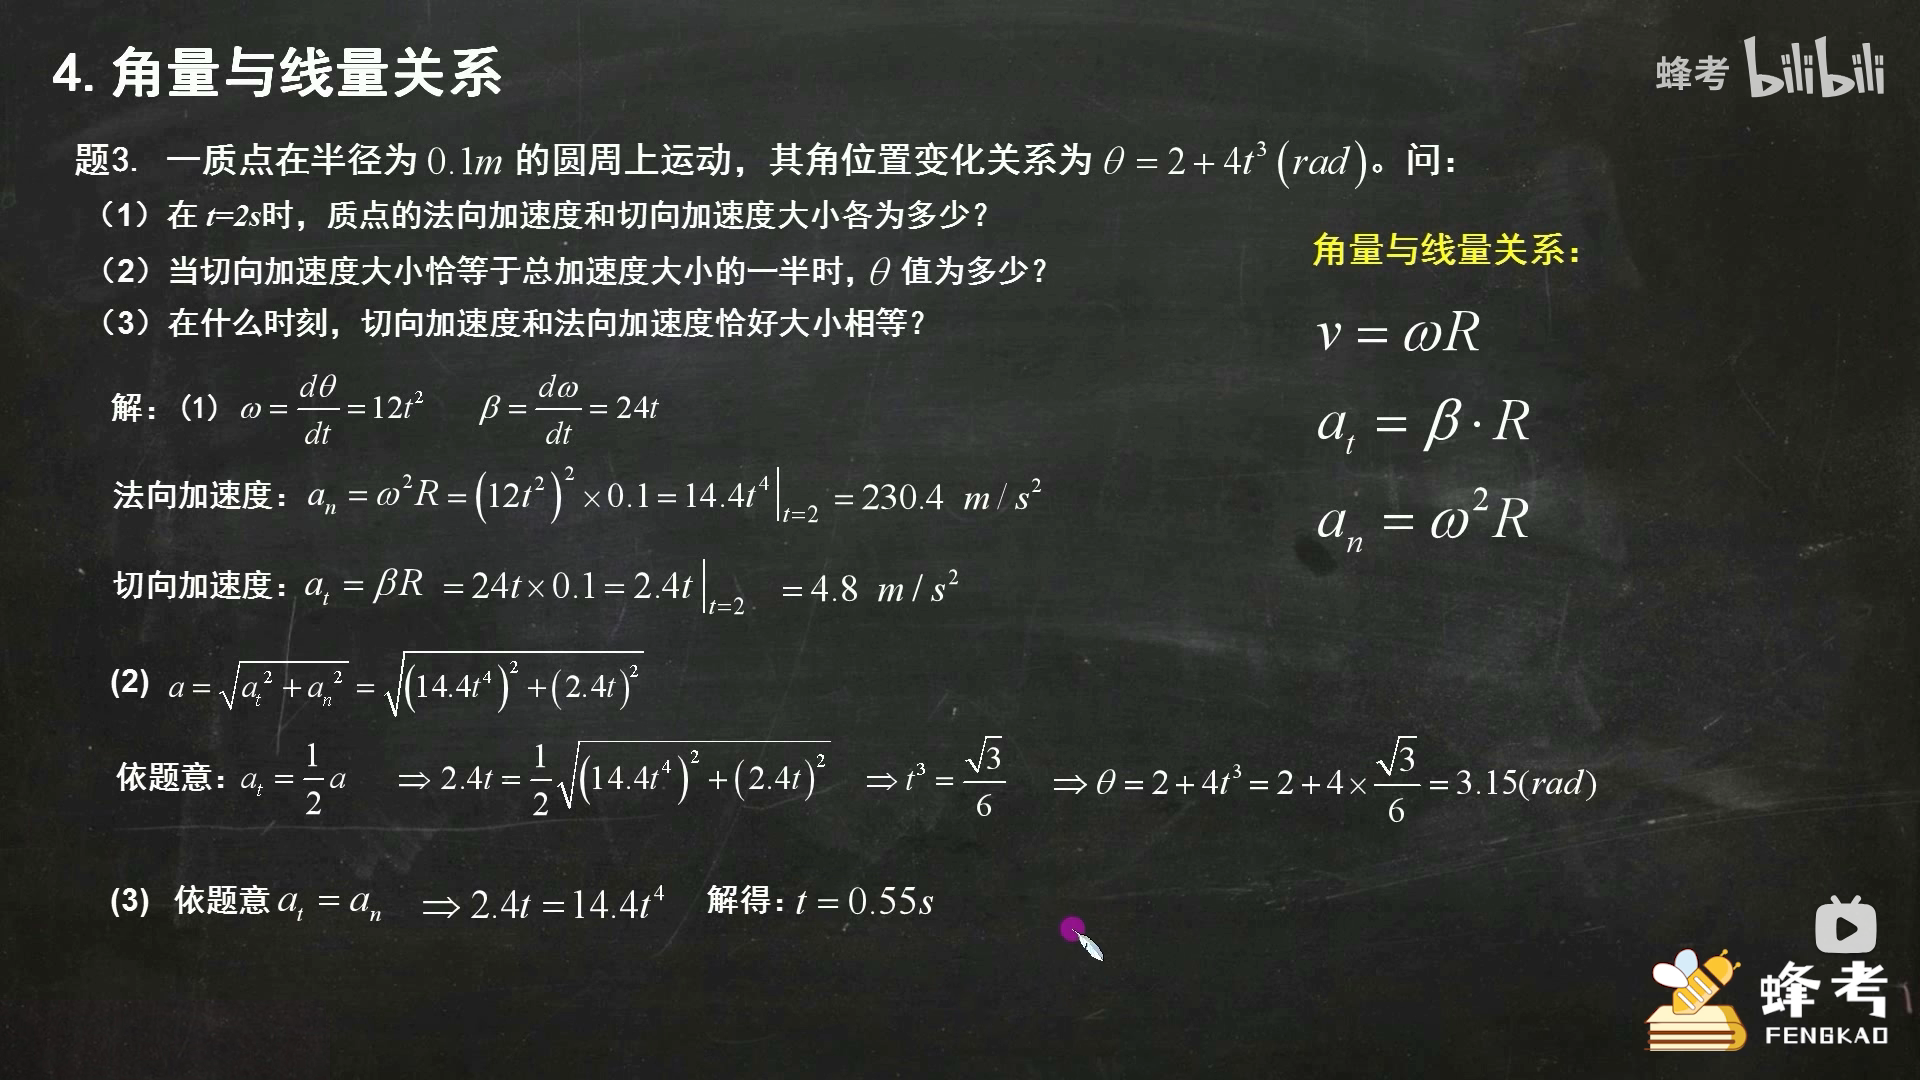 4. 角量与线量关系
蜂考 bilibili
题3. 一质点在半径为 0.1m 的圆周上运动，其角位置变化关系为 θ = 2 + 4t³ (rad)。问：
（1）在 t=2s时，质点的法向加速度和切向加速度大小各为多少？
（2）当切向加速度大小恰等于总加速度大小的一半时，θ 值为多少？
（3）在什么时刻，切向加速度和法向加速度恰好大小相等？
角量与线量关系：
v = ωR
a_t = β · R
a_n = ω²R
解：(1) ω = dθ/dt = 12t² β = dω/dt = 24t
法向加速度：a_n = ω²R = (12t²)² × 0.1 = 14.4t⁴ |_{t=2} = 230.4 m / s²
切向加速度：a_t = βR = 24t × 0.1 = 2.4t |_{t=2} = 4.8 m / s²
(2) a = √(a_t² + a_n²) = √((14.4t⁴)² + (2.4t)²)
依题意：a_t = 1/2 a ⇒ 2.4t = 1/2 √((14.4t⁴)² + (2.4t)²) ⇒ t³ = √3/6 ⇒ θ = 2 + 4t³ = 2 + 4 × √3/6 = 3.15(rad)
(3) 依题意 a_t = a_n ⇒ 2.4t = 14.4t⁴ 解得：t = 0.55s
蜂考
FENGKAO